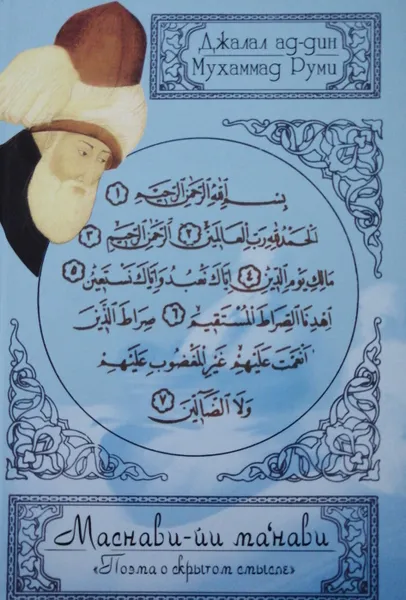 Джалал ад-дин
Мухаммад Руми
بِسْمِ اللهِ الرَّحْمٰنِ الرَّحِيْمِ ﴿١﴾
اَلْحَمْدُ لِلّٰهِ رَبِّ الْعَالَمِيْنَ ﴿٢﴾ اَلرَّحْمٰنِ الرَّحِيْمِ ﴿٣﴾
مَالِكِ يَوْمِ الدِّيْنِ ﴿٤﴾ اِيَّاكَ نَعْبُدُ وَاِيَّاكَ نَسْتَعِيْنُ ﴿٥﴾
اِهْدِنَا الصِّرَاطَ الْمُسْتَقِيْمَ ﴿٦﴾ صِرَاطَ الَّذِيْنَ
اَنْعَمْتَ عَلَيْهِمْ غَيْرِ الْمَغْضُوْبِ عَلَيْهِمْ
وَلَا الضَّالِّيْنَ ﴿٧﴾
Маснави-йи ма'нави
«Поэма о скрытом смысле»